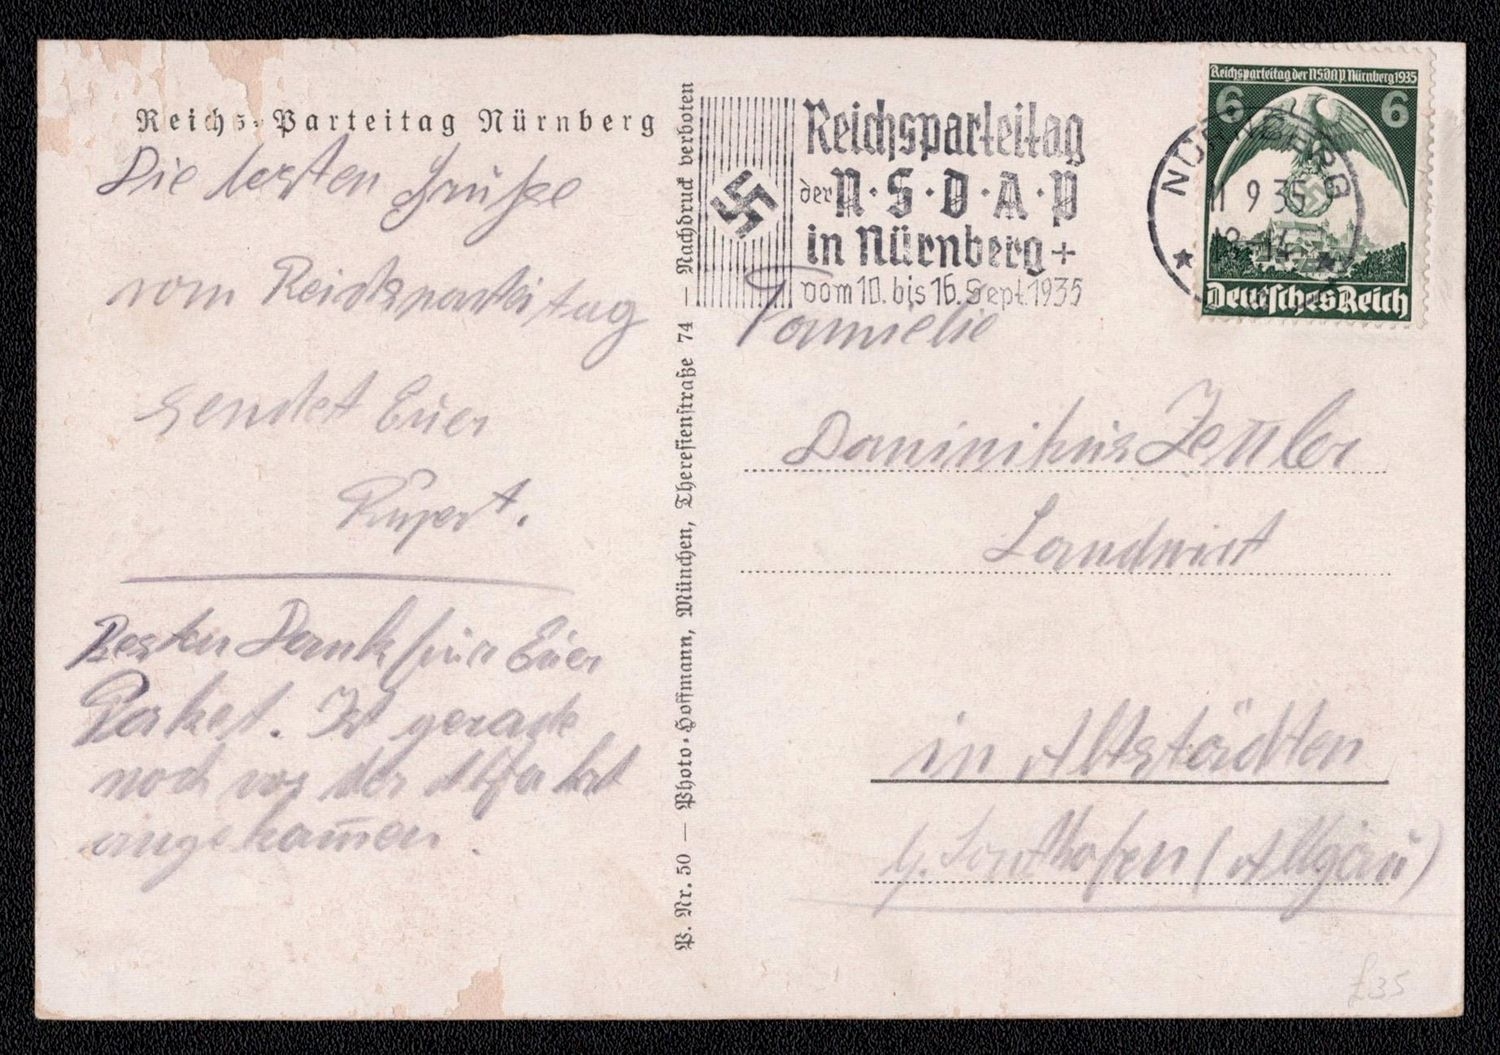 Reichs-Parteitag Nürnberg
Die besten Grüße
vom Reichsparteitag
sendet Euer
Rupert.
Besten Dank für Euer
Paket. Ist gerade
noch vor der Abfahrt
angekom̅en.
P. Nr. 50 — Photo-Hoffmann, München, Theresienstraße 74 — Nachdruck verboten
Reichsparteitag
der N·S·D·A·P
in Nürnberg +
vom 10. bis 16. Sept. 1935
NÜRNBERG
11 9 35
Reichsparteitag der N.S.D.A.P. Nürnberg 1935
6 6
Deutsches Reich
Fammielie
Dominikus Zettler
Landwirt
in Altstädten
b. Sonthofen (Allgäu)
£35